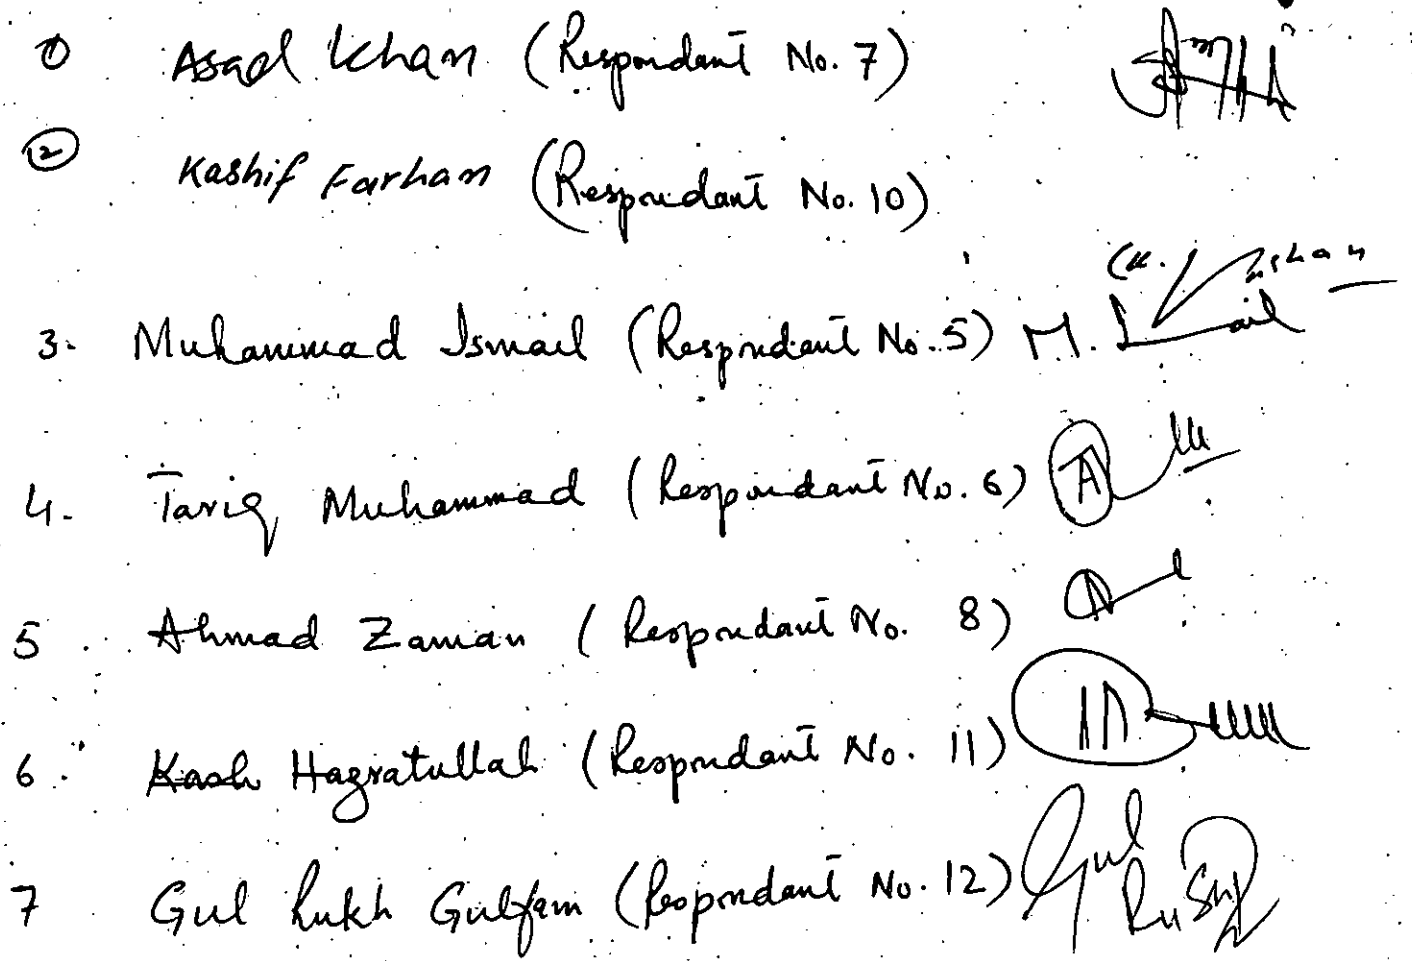 ① Asad Khan (Respondant No. 7)
② Kashif Farhan (Respondant No. 10)
3. Muhammad Ismail (Respondant No. 5) M. Ismail
4. Tariq Muhammad (Respondant No. 6)
5. Ahmad Zaman (Respondant No. 8)
6. Kash Hazratullah (Respondant No. 11)
7 Gul Rukh Gulfam (Respondant No. 12) Gul